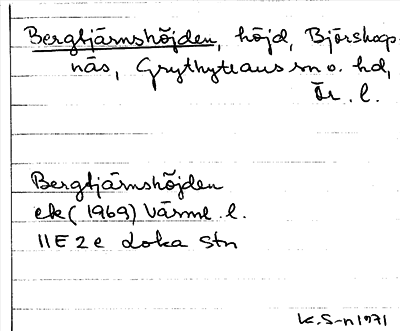 Bergtjärnshöjden, höjd, Björskogs-
näs, Grythytteans sn o. hd,
Ör. l.
Bergtjärnshöjden
ek (1969) Värml. l.
11E 2e Loka stn
K.S-n 1971